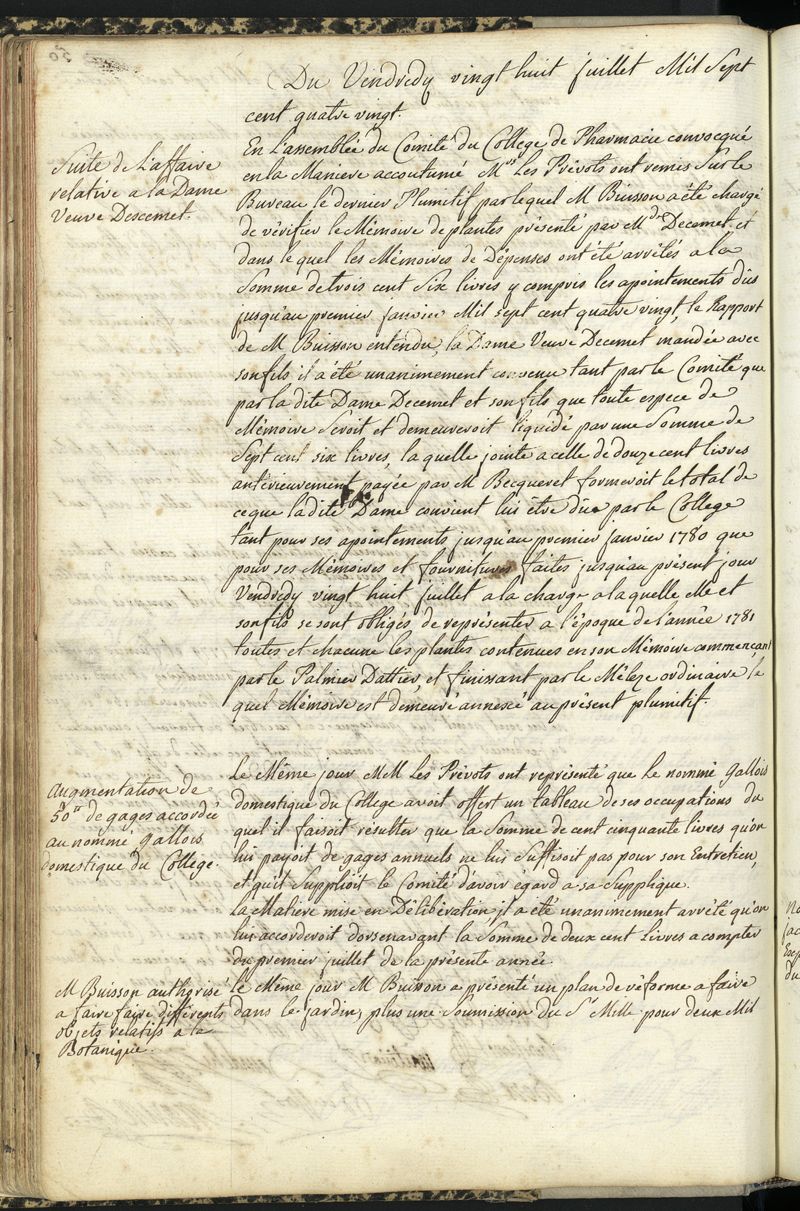 Du Vendredy vingt huit juillet Mil Sept
cent quatre vingt.
Suite de L'affaire
relative a la Dame
Veuve Descemet.
En L'assemblée du Comité du College de Pharmacie convocqué
en la Maniere accoutumé Mrs Les Prévots ont remis Sur le
Bureau le dernier Plumitif par lequel M Buisson a été chargé
de vérifier le Mémoire de plantes présenté par Md Decemet, et
dans le quel les Mémoires de Dépenses ont été arrêtés a la
Somme de trois cent Six livres y compris les apointements dûs
jusqu'au premier janvier Mil sept cent quatre vingt, le Rapport
de M Buisson entendu, la Dame Veuve Decemet mandée avec
son fils il a été unanimement convenu tant par le Comité que
par la dite Dame Decemet et son fils que toute espece de
Mémoire Seroit et demeureroit liquidé par une Somme de
Sept cent six livres, la quelle jointe a celle de douze cent livres
antérieurement payée par M Becqueret formeroit le total de
ce que la dite Dame convient lui être due par le College
tant pour ses apointements jusqu'au premier janvier 1780 que
pour ses Mémoires et fournitures faites jusqu'au présent jour
Vendredy vingt huit juillet a la charge a la quelle elle et
son fils se sont obligés de représenter a l'époque de l'année 1781
toutes et chacune les plantes contenues en son Mémoire commençant
par le Palmier Dattier, et finissant par le Mêleze ordinaire le
quel Mémoire est demeuré annexé au présent plumitif.
Augmentation de
50tt de gages accordée
au nommé Gallois
domestique du College.
Le Même jour MM Les Prévots ont représenté que Le nommé Gallois
domestique du College avoit offert un tableau de ses occupations du
quel il faisoit résulter que la Somme de cent cinquante livres qu'on
lui payoit de gages annuels ne lui Suffisoit pas pour son Entretien,
et qu'il Supplioit le Comité d'avoir égard a sa Supplique.
La Matiere mise en Délibération il a été unanimement arrêté qu'on
lui accorderoit dorsenavant la Somme de deux cent Livres a compter
du premier juillet de la présente année.
M Buisson authorisé
a faire faire differents
objets relatifs a la
Botanique.
Le Même jour M Buisson a présenté un plan de réforme a faire
dans le jardin, plus une Soumission du Sr Mille pour deux Mil